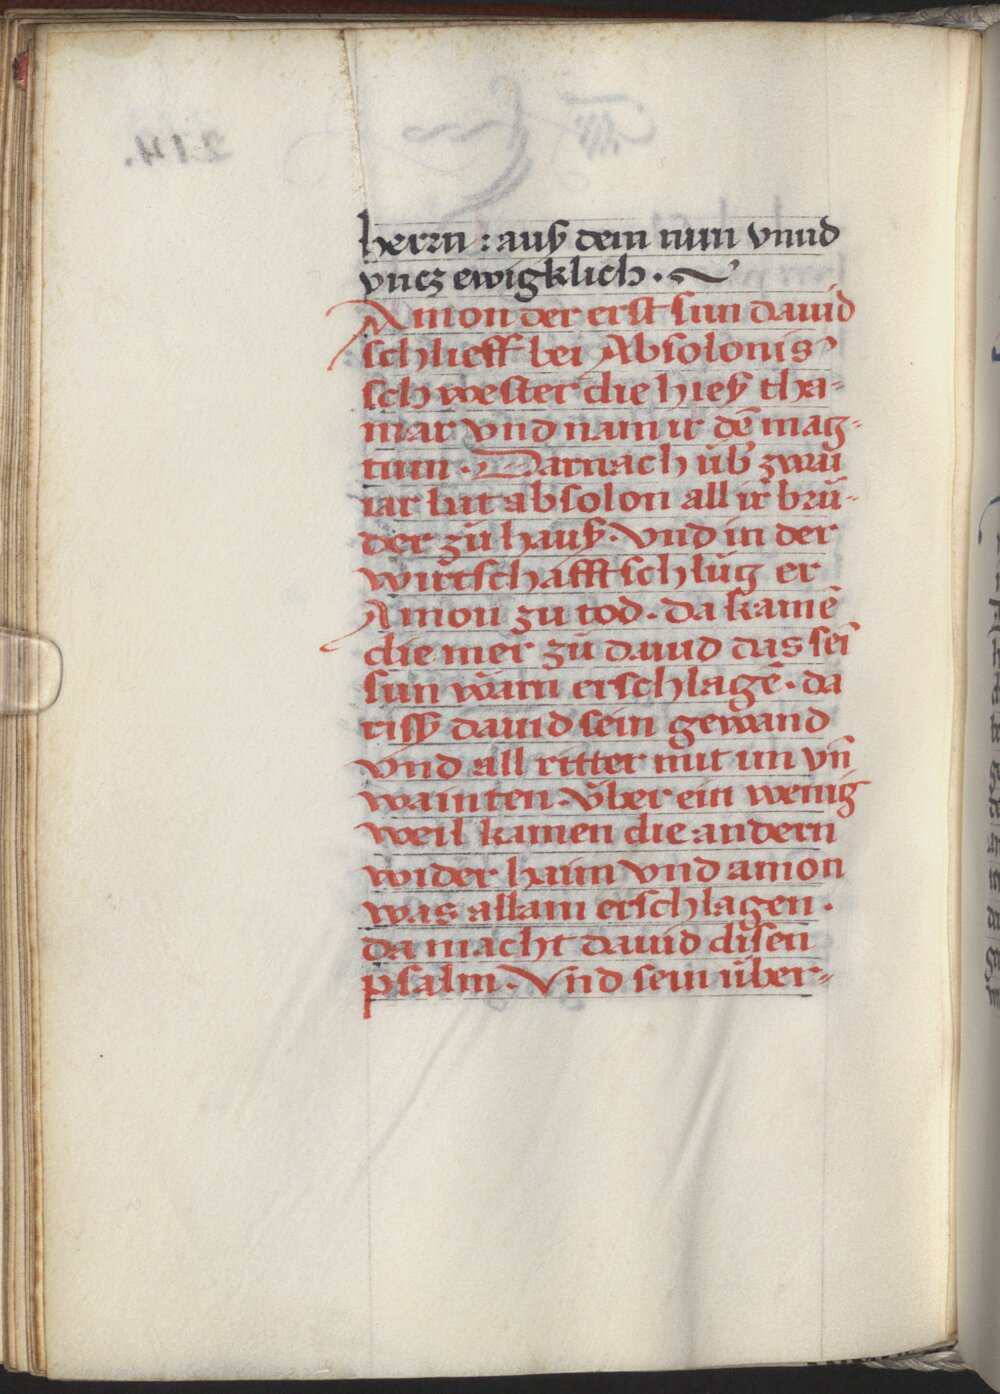 herrn : auß dem nun vnnd
vncz ewigklich .
Amon der erst sun dauid
schlieff bei Absolonis
schwester die hieß tha-
mar vnd nam ir dē mag-
tum . Darnach üb zwai
iar lut absolon all ir brü-
der zů hauß . vnd in der
wirtschafft schlůg er
Amon zu tod . da kamē
die mer zů dauid das sei
sun wärn erschlagē . da
riss dauid sein gewand
vnd all ritter mit im vn̄
wainten . v̈ber ein wenig
weil kamen die andern
wider haim vnd amon
was allain erschlagen .
da macht dauid disen
psalm . Vnd sein über-